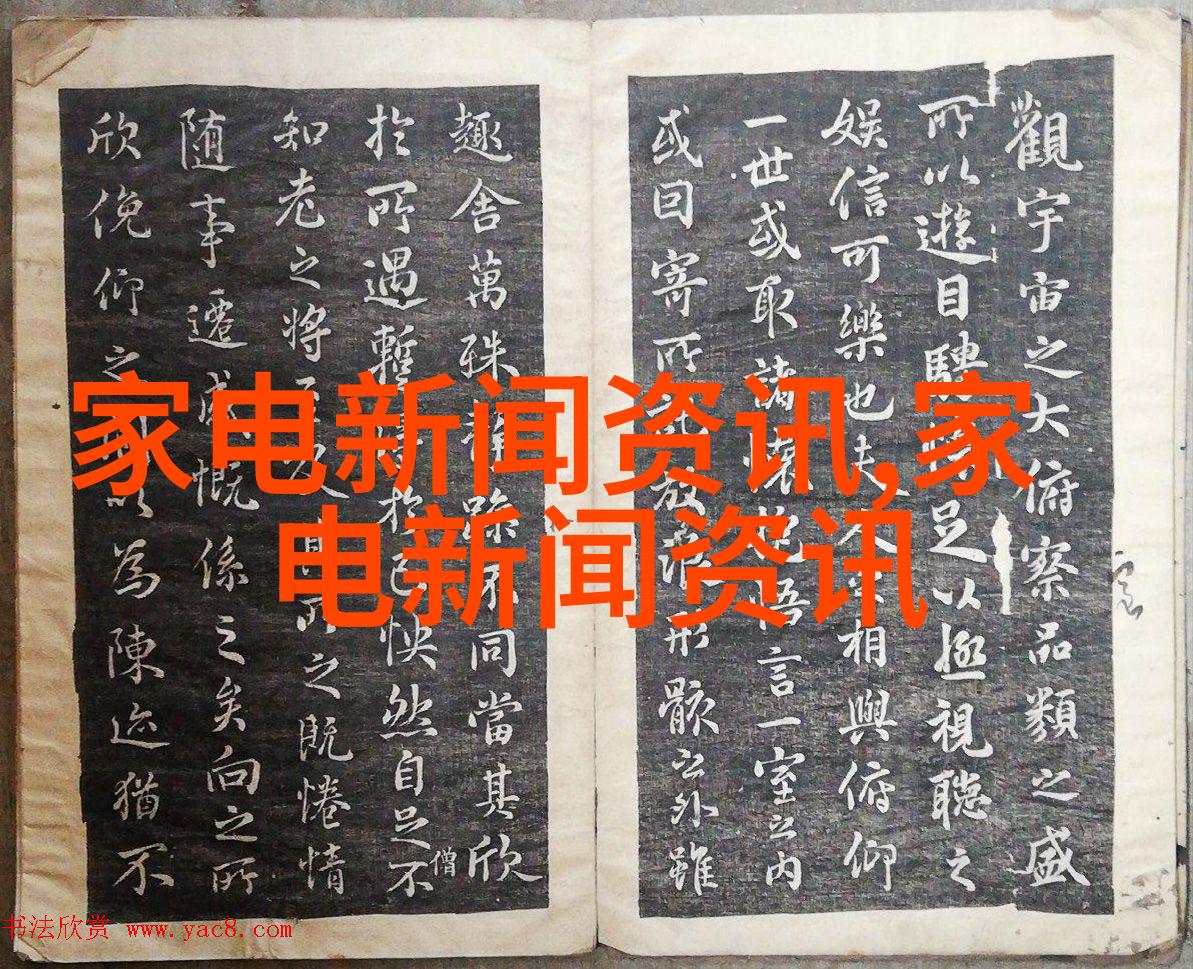 觀宇宙之大俯察品類之盛
所以遊目騁足以極視聽之
娛信可樂也夫相與俯仰
一世或取諸懷抱悟言一室之內
或因寄所放浪形骸之外雖
趣舍萬殊靜躁不同當其欣
於所遇暫得於己怏然自足不
僧
知老之將及其所之既惓情
隨事遷感慨係之矣向之所
欣俛仰之間以為陳迹猶不
家电新闻资讯,家
电新闻资讯
书法欣赏 www.yac8.com